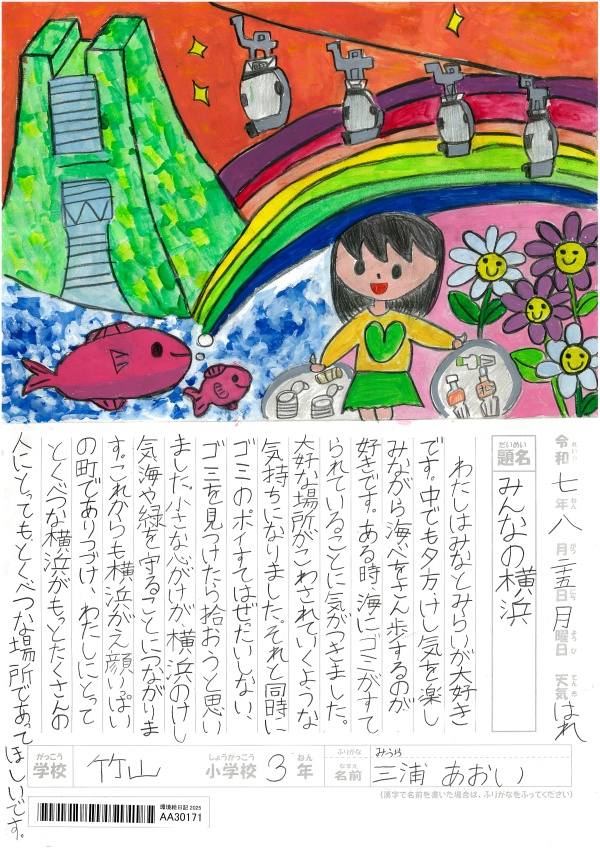 令和七年八月二五日月曜日 天気 はれ
れいわ ねん がつ にち ようび てんき
だいめい
題名 みんなの横浜
わたしはみなとみらいが大好き
です。中でも夕方、けし気を楽し
みながら海べをさん歩するのが
好きです。ある時、海にゴミがすて
られていることに気がつきました。
大好な場所がこわされていくような
気持ちになりました。それと同時に
ゴミのポイすてはぜったいしない、
ゴミを見つけたら拾おうと思い
ました。小さな心がけが、横浜のけし
気、海や緑を守ることにつながりま
す。これからも横浜がえ顔いっぱい
の町でありつづけ、わたしにとって
とくべつな横浜がもっとたくさんの
人にとっても、とくべつな場所であってほしいです。
がっこう しょうがっこう ねん
学校 竹山 小学校 3年
ふりがな みうら
なまえ
名前 三浦 あおい
(漢字で名前を書いた場合は、ふりがなをふってください)
環境絵日記 2025
AA30171